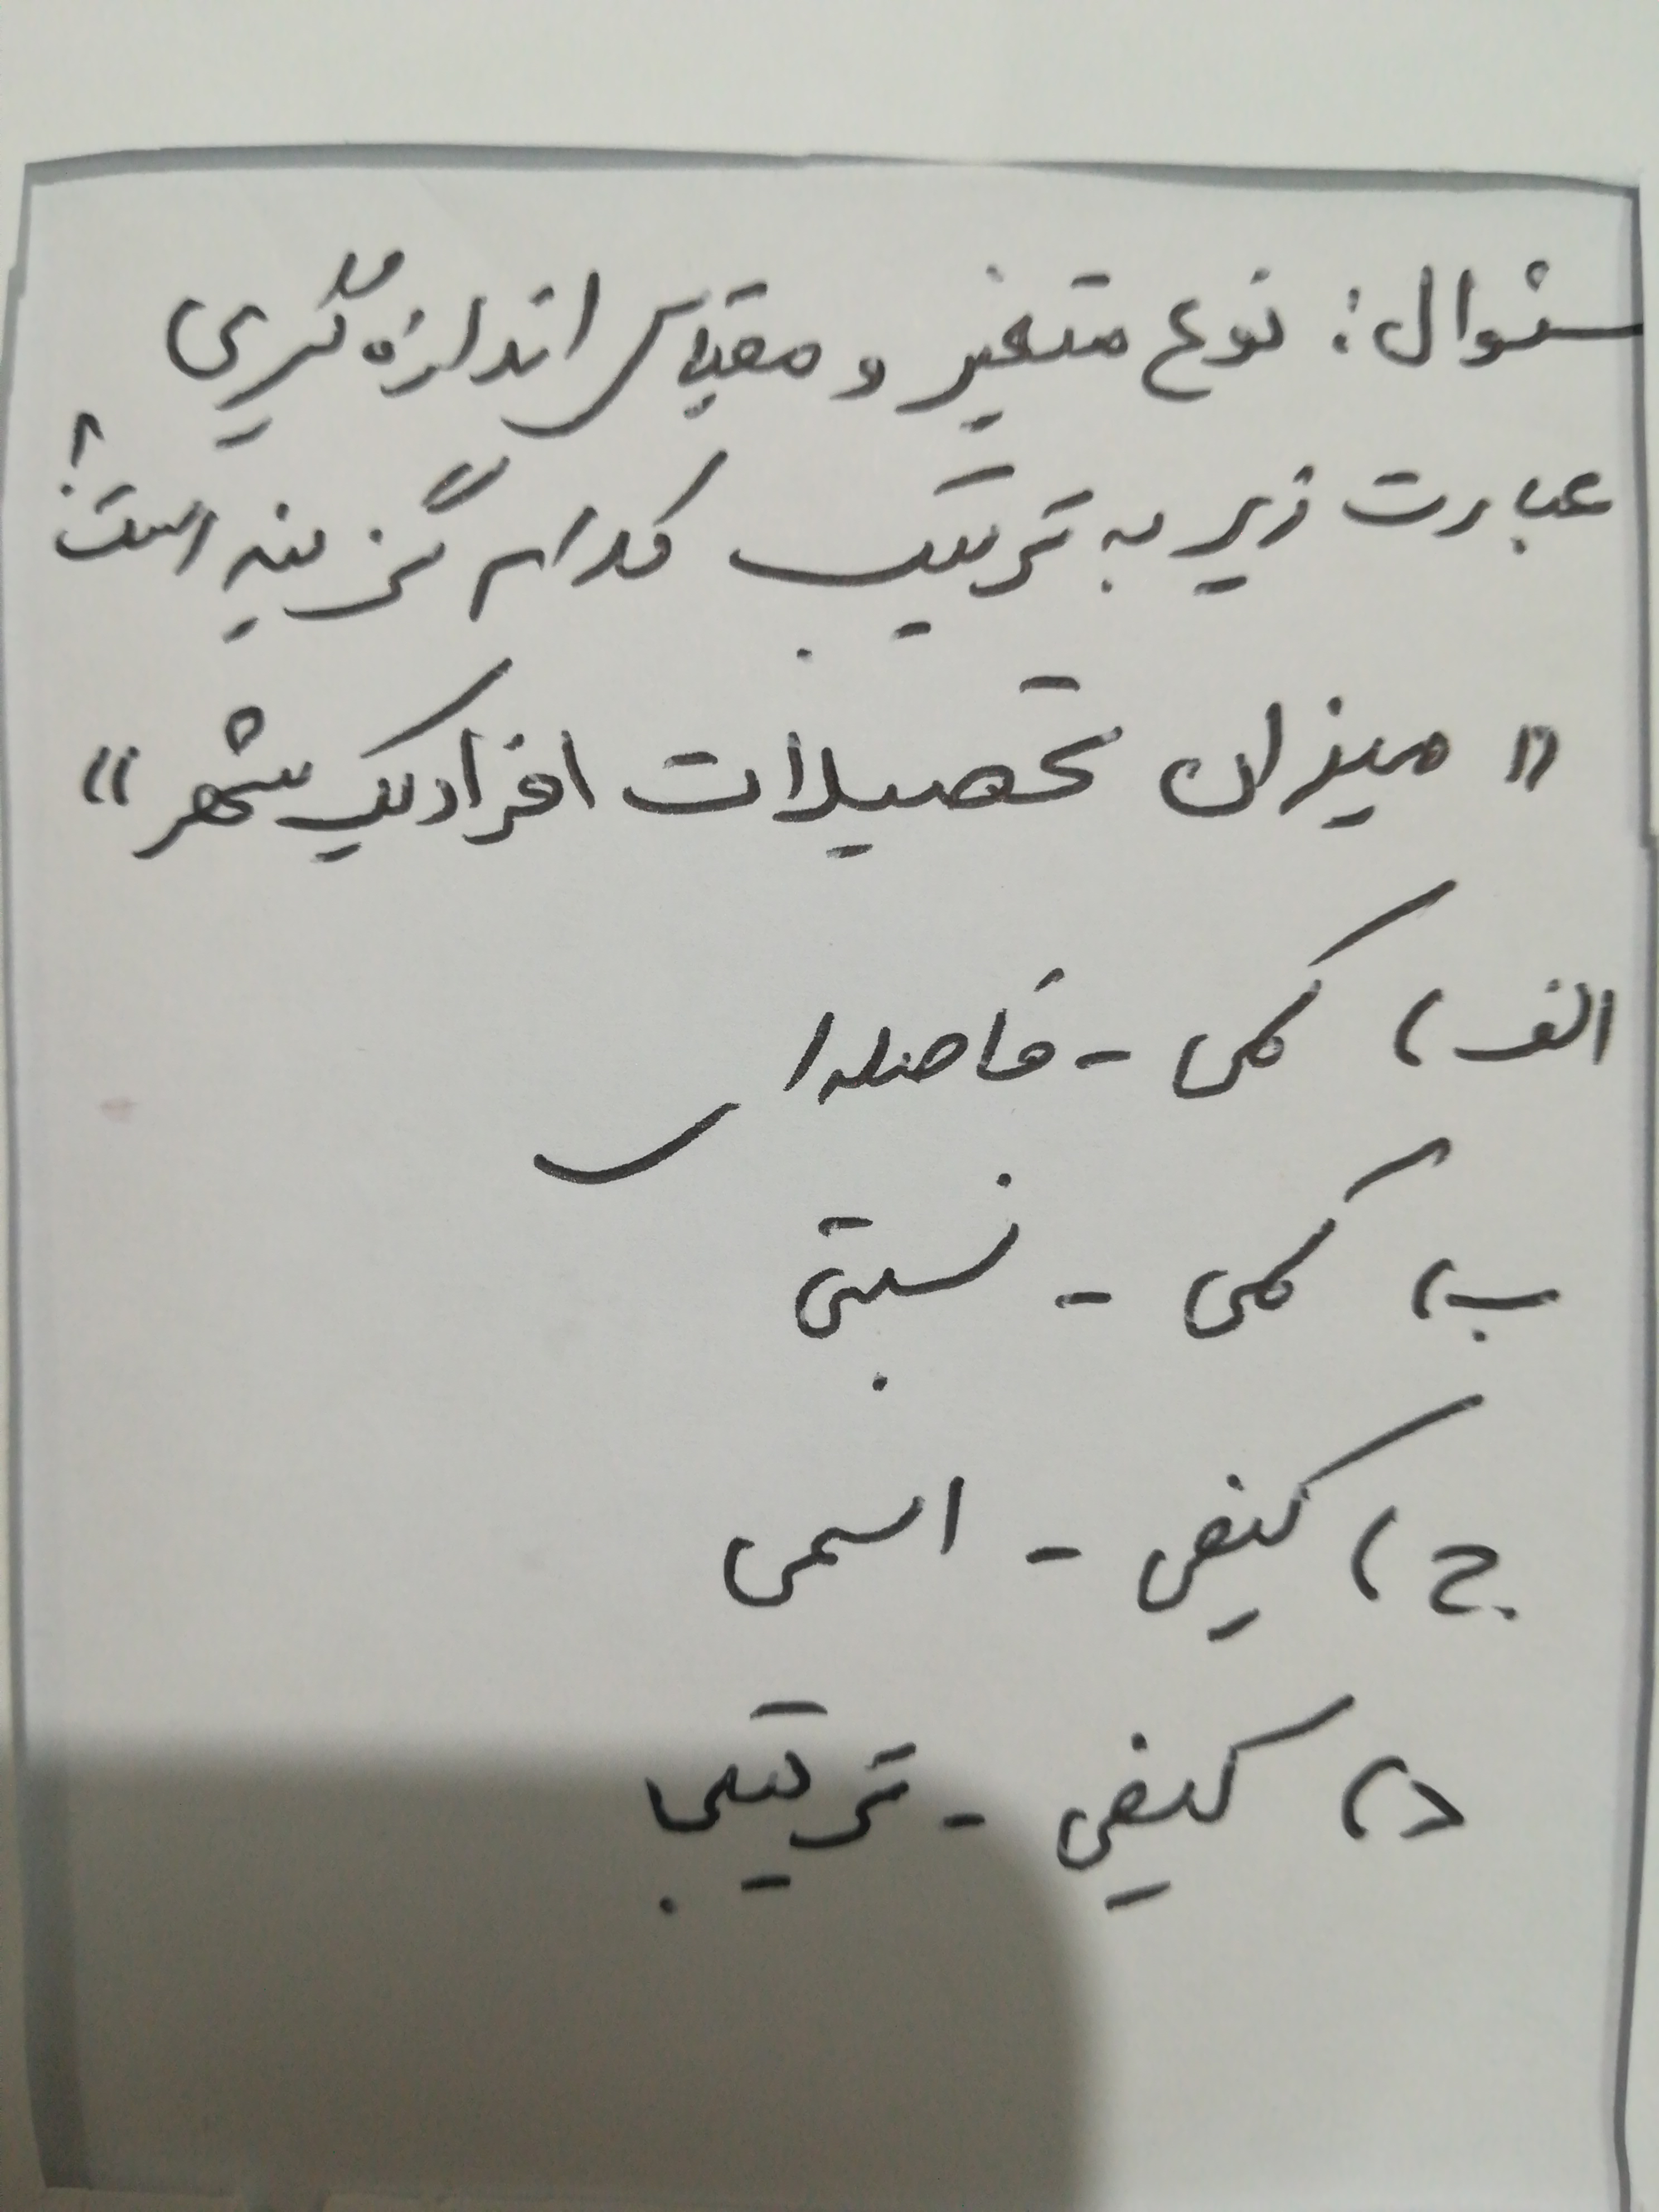 سئوال: نوع متغیر و مقیاس اندازه گیری
عبارت زیر به ترتیب کدام گزینه است؟
« میزان تحصیلات افراد یک شهر »
الف) کمی - فاصله ای
ب) کمی - نسبتی
ج) کیفی - اسمی
د) کیفی - ترتیبی